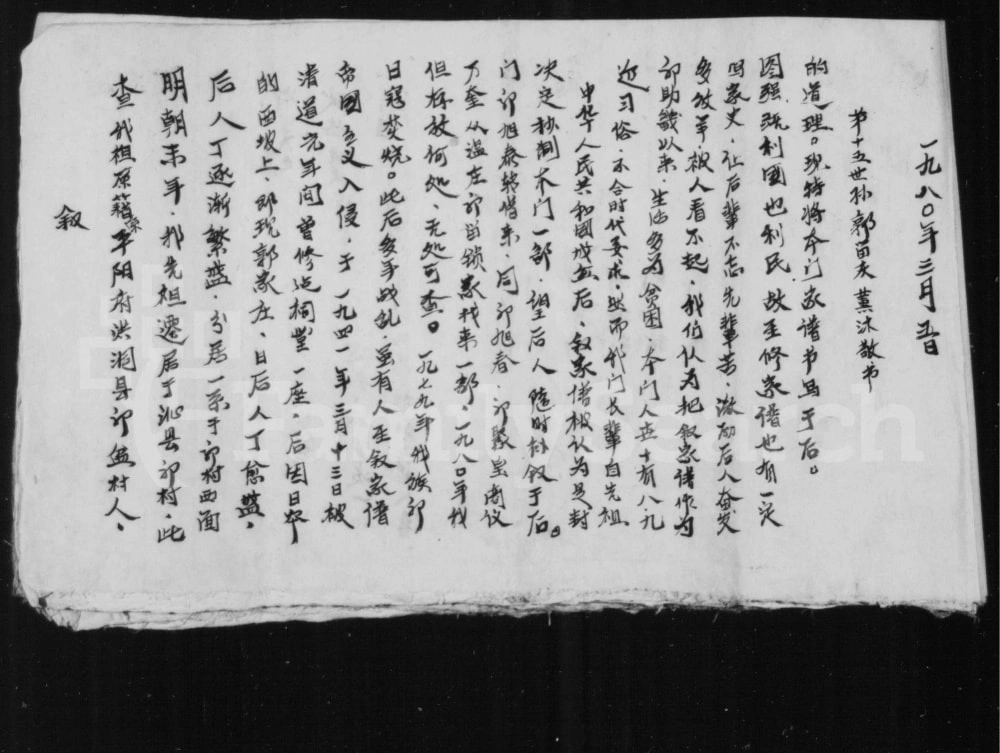 叙
查我祖原籍系平阳府洪洞县郭盆村人，
明朝末年，我先祖遷居于沁县郭村，此
后人丁逐渐繁盛，分居一系于郭村西面
的西坡上，即现郭家庄，日后人丁愈盛，
清道光年间曾修造祠堂一座，后因日本
帝國主义入侵，于一九四一年三月十三日被
日寇焚烧。此后多年战乱，虽有人至叙家谱
但存放何处，无处可查。一九七九年我族郭
万奎从温庄郭锁家找来一部，一九八〇年我
门郭旭泰转借来，同郭旭春、郭聚皇商仪
决定抄制本门一部，望后人随时补叙于后。
中华人民共和國成立后，叙家谱被认为是封
近习俗，不合时代要求，然而我门长辈自先祖
郭助畿以来，生活多为贫困，本门人十有八九
多放羊，被人看不起，我们认为把叙家谱作为
写家史，让后辈不忘先辈苦，激励后人奋发
图强，既利國也利民，故至修家谱也有一定
的道理。现特将本门家谱书写于后。
第十五世孙郭苗夫薰沐敬书
一九八〇年三月五日
FamilySearch